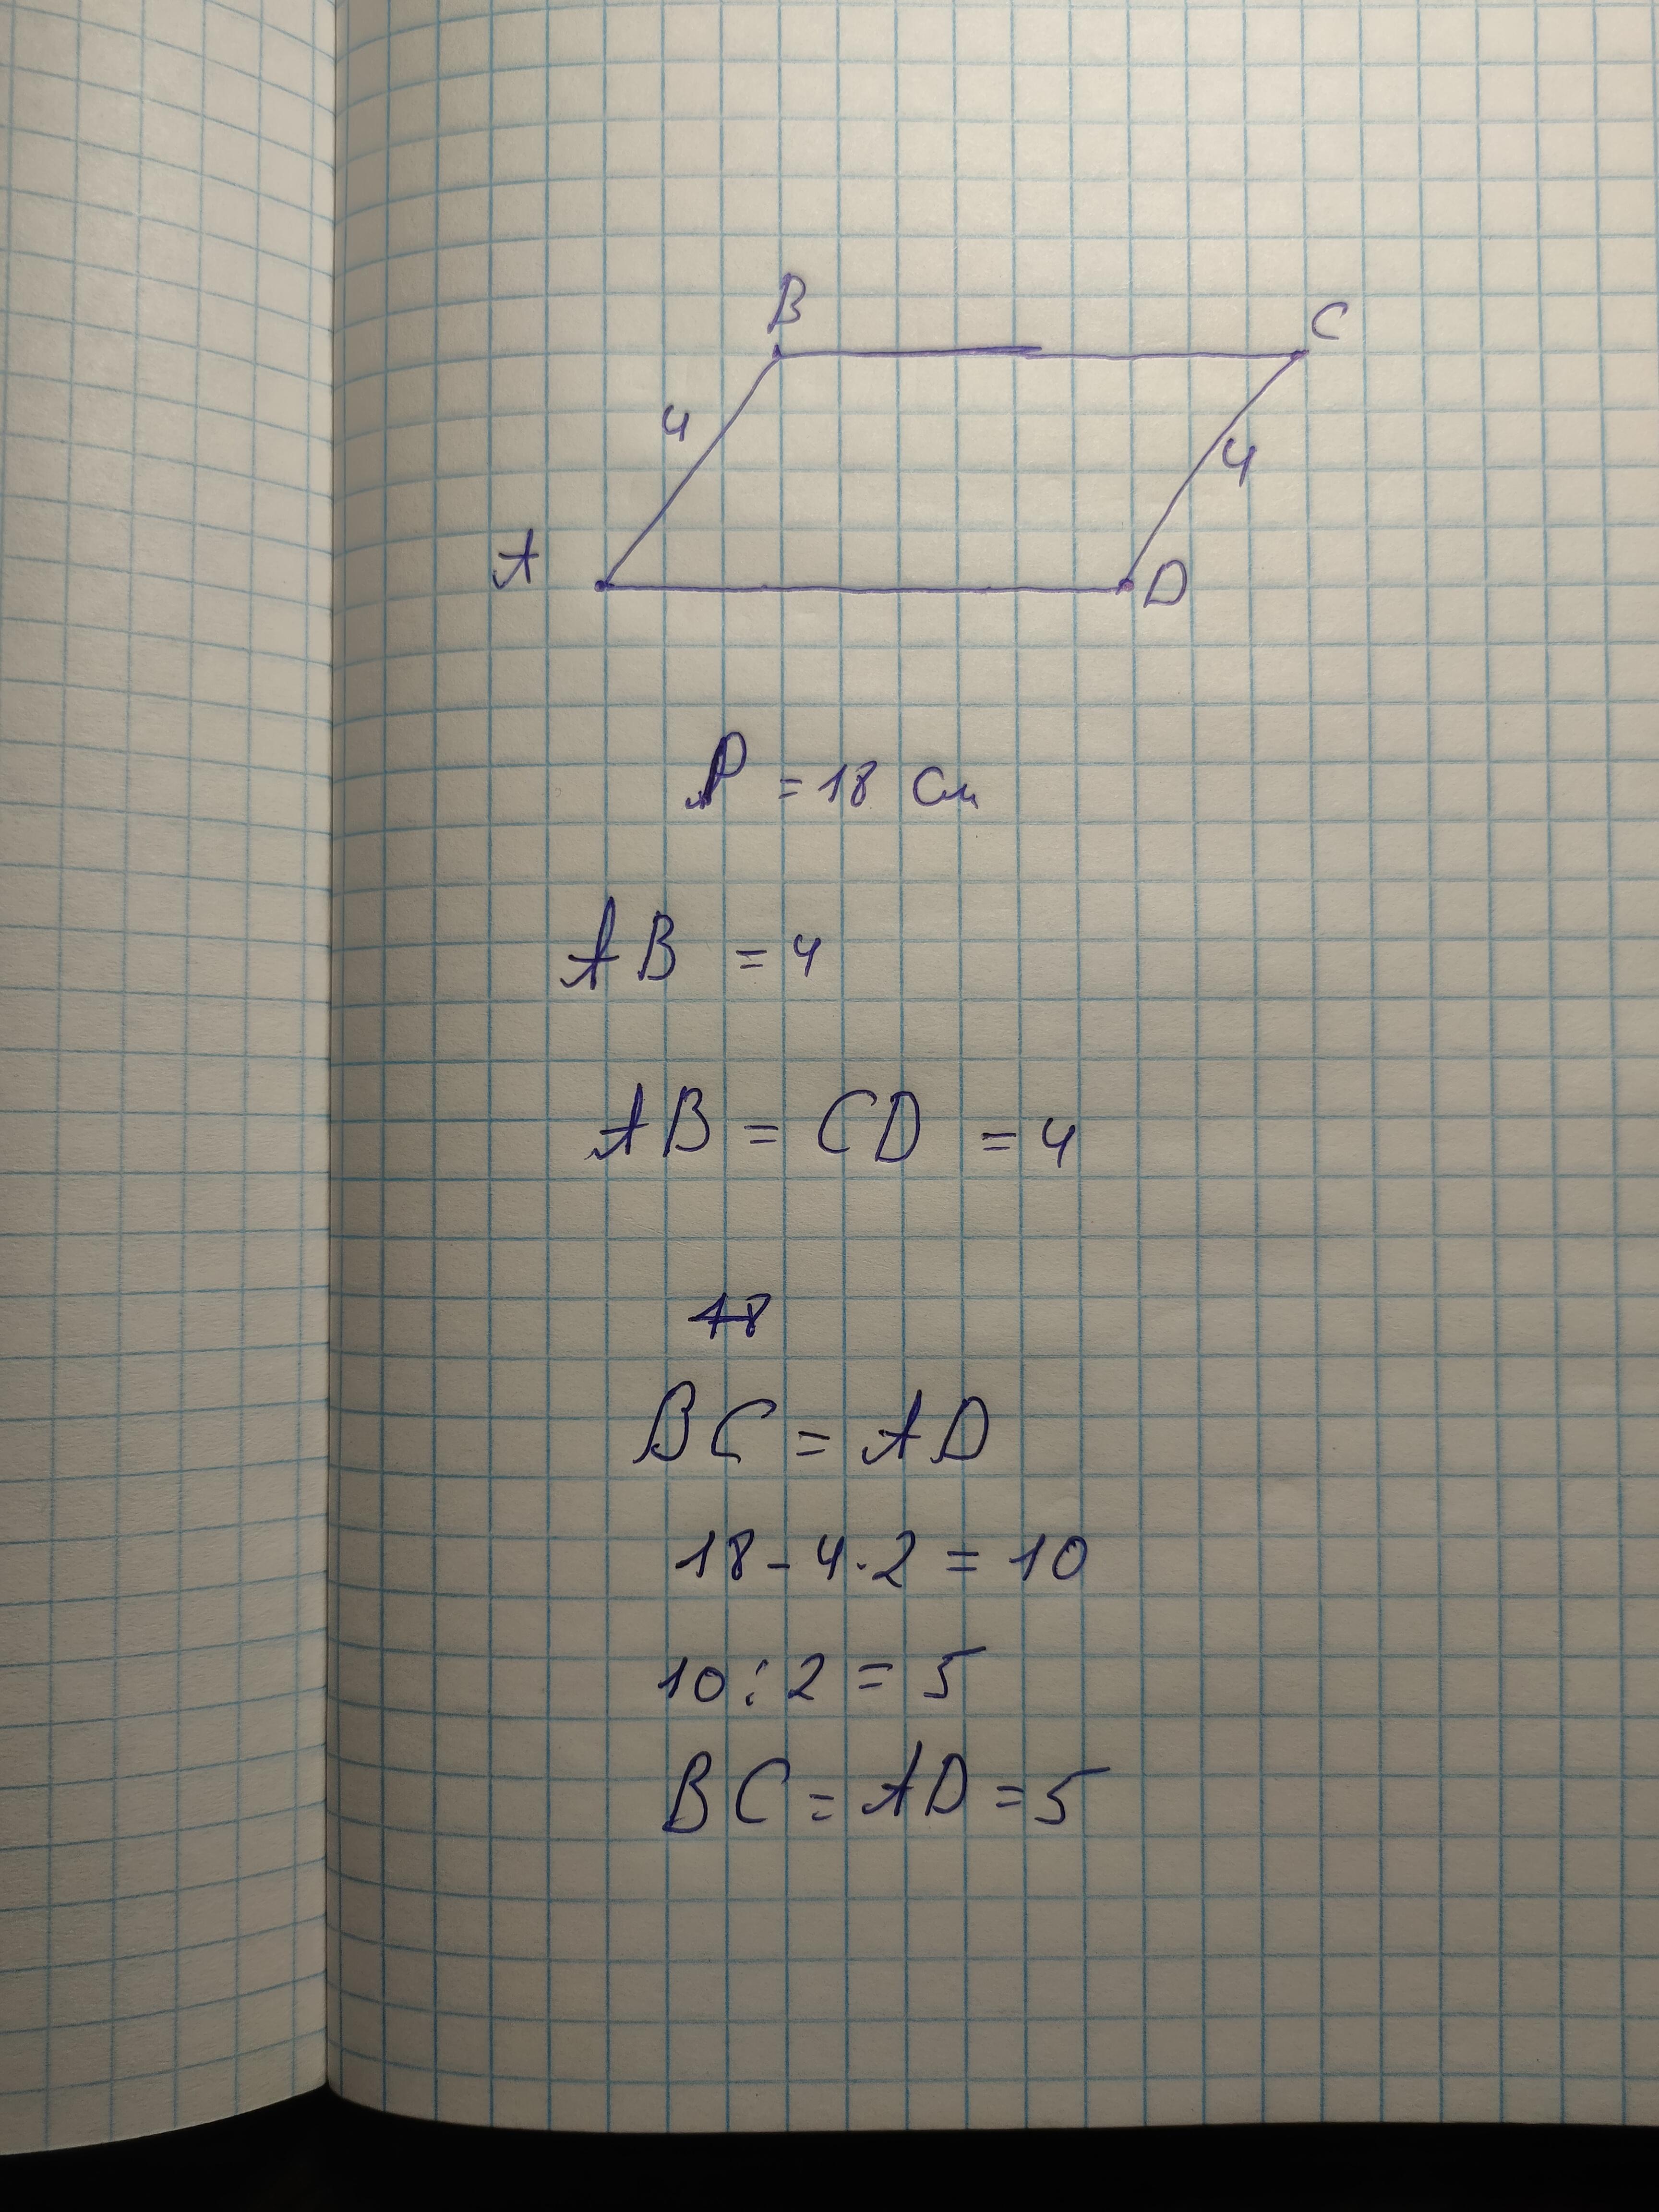 B
C
4
4
A
D
P = 18 см
AB = 4
AB = CD = 4
18
BC = AD
18 - 4 · 2 = 10
10 : 2 = 5
BC = AD = 5